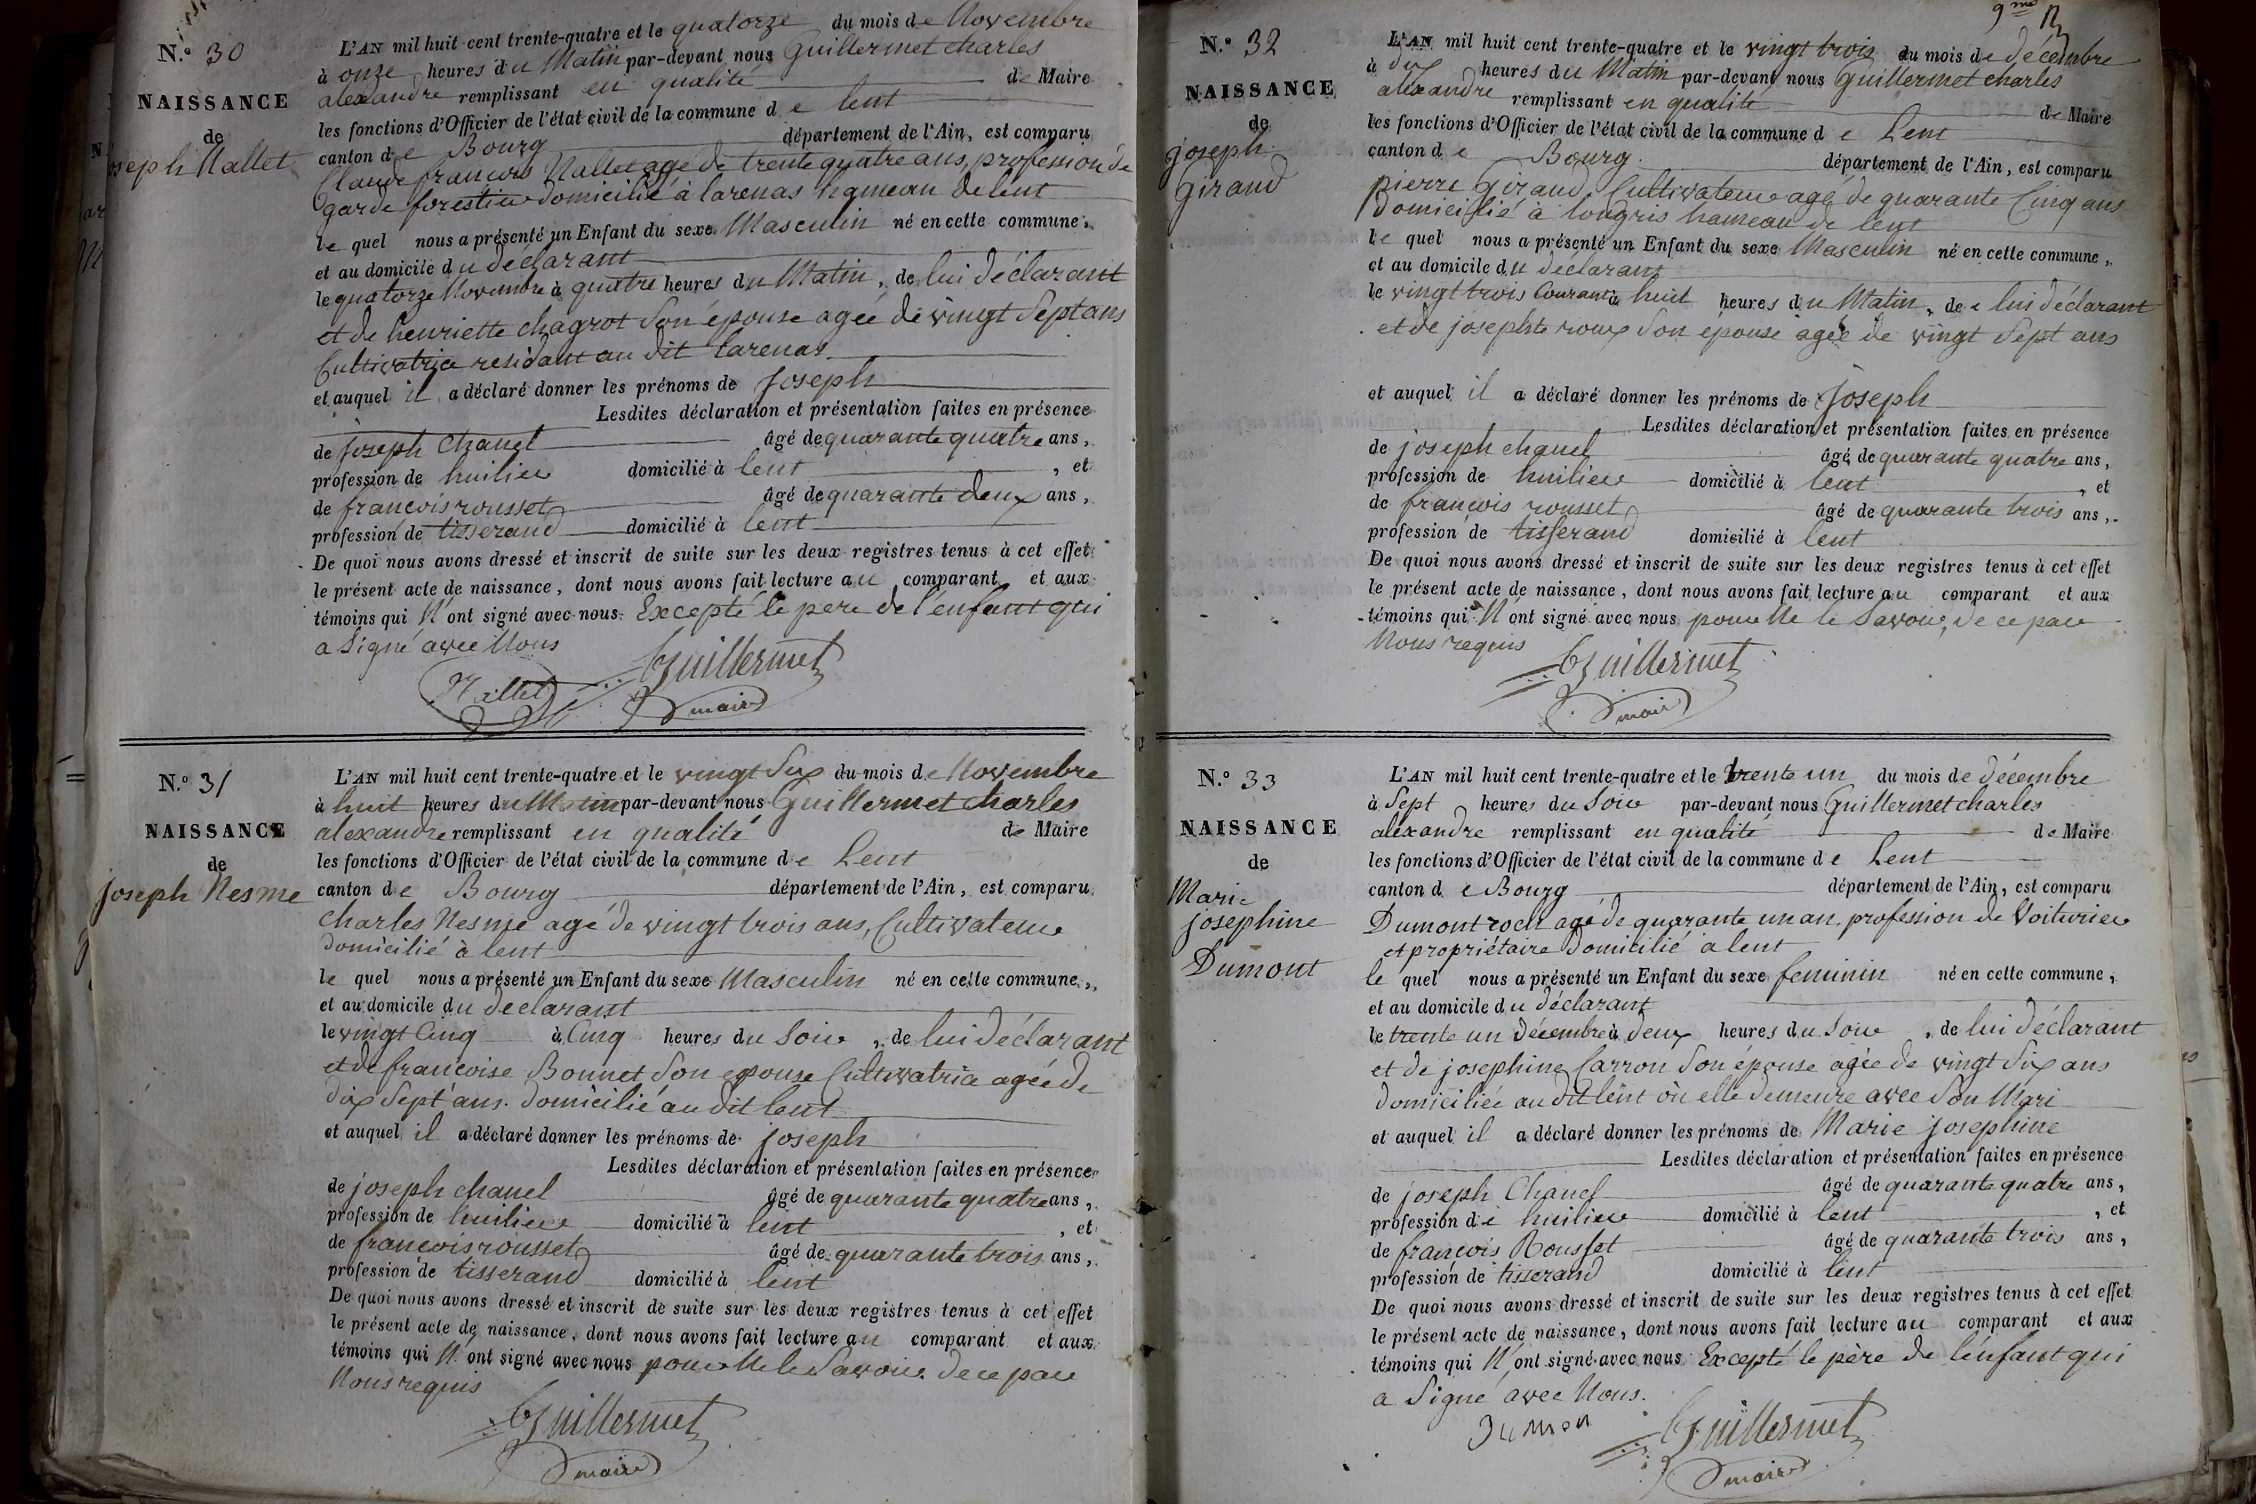 N.o 30
NAISSANCE
de
Joseph Nallet
L'AN mil huit cent trente-quatre et le quatorze du mois de Novembre
à onze heures du Matin par-devant nous Guillermet charles
alexandre remplissant en qualité de Maire
les fonctions d'Officier de l'état civil de la commune de lent
canton de Bourg département de l'Ain, est comparu
Claude francois Nallet agé de trente quatre ans, profession de
garde forestier domicilié à larenas hameau de lent
le quel nous a présenté un Enfant du sexe Masculin né en cette commune,
et au domicile du déclarant
le quatorze Novembre à quatre heures du Matin, de lui déclarant
et de henriette chagrot Son épouse agée de vingt Sept ans
Cultivatrice residant au dit larenas
et auquel il a déclaré donner les prénoms de Joseph
Lesdites déclaration et présentation faites en présence
de joseph chanel âgé de quarante quatre ans,
profession de huilier domicilié à lent, et
de francois rousset âgé de quarante deux ans,
profession de tisserand domicilié à lent
De quoi nous avons dressé et inscrit de suite sur les deux registres tenus à cet effet
le présent acte de naissance, dont nous avons fait lecture au comparant et aux
témoins qui N'ont signé avec nous Excepté le pere de l'enfant qui
a Signé avec Nous
Nallet Guillermet
maire
N.o 31
NAISSANCE
de
joseph Nesme
L'AN mil huit cent trente-quatre et le vingt Six du mois de Novembre
à huit heures du Matin par-devant nous Guillermet charles
alexandre remplissant en qualité de Maire
les fonctions d'Officier de l'état civil de la commune de Lent
canton de Bourg département de l'Ain, est comparu
charles Nesme agé de vingt trois ans, Cultivateur
domicilié à lent
le quel nous a présenté un Enfant du sexe Masculin né en cette commune,
et au domicile du declarant
le vingt Cinq à Cinq heures du Soir, de lui déclarant
et de francoise Bonnet Son epouse Cultivatrice agée de
dix Sept ans. domicilié au dit lent
et auquel il a déclaré donner les prénoms de joseph
Lesdites déclaration et présentation faites en présence
de joseph chanel âgé de quarante quatre ans,
profession de huilier domicilié à lent, et
de francois rousset âgé de quarante trois ans,
profession de tisserand domicilié à lent
De quoi nous avons dressé et inscrit de suite sur les deux registres tenus à cet effet
le présent acte de naissance, dont nous avons fait lecture au comparant et aux
témoins qui N'ont signé avec nous pour Ne le Savoir de ce par
Nous requis
Guillermet
maire
9me
N.o 32
NAISSANCE
de
joseph
Giraud
L'AN mil huit cent trente-quatre et le vingt trois du mois de décembre
à dix heures du Matin par-devant nous Guillermet charles
alexandre remplissant en qualité de Maire
les fonctions d'Officier de l'état civil de la commune de Lent
canton de Bourg département de l'Ain, est comparu
pierre Giraud, Cultivateur agé de quarante Cinq ans
domicilié à longris hameau de lent
le quel nous a présenté un Enfant du sexe Masculin né en cette commune,
et au domicile du déclarant
le vingt trois Courant à huit heures du Matin, de lui déclarant
et de josephte roux Son épouse agée de vingt Sept ans
et auquel il a déclaré donner les prénoms de Joseph
Lesdites déclaration et présentation faites en présence
de joseph chanel âgé de quarante quatre ans,
profession de huilier domicilié à lent, et
de francois rousset âgé de quarante trois ans,
profession de tisserand domicilié à lent
De quoi nous avons dressé et inscrit de suite sur les deux registres tenus à cet effet
le présent acte de naissance, dont nous avons fait lecture au comparant et aux
témoins qui N'ont signé avec nous pour Ne le Savoir, de ce par
Nous requis
Guillermet
maire
N.o 33
NAISSANCE
de
Marie
josephine
Dumont
L'AN mil huit cent trente-quatre et le trente un du mois de décembre
à Sept heures du Soir par-devant nous Guillermet charles
alexandre remplissant en qualité de Maire
les fonctions d'Officier de l'état civil de la commune de Lent
canton de Bourg département de l'Ain, est comparu
Dumont roch agé de quarante un an, profession de Voiturier
et propriétaire domicilié a lent
le quel nous a présenté un Enfant du sexe feminin né en cette commune,
et au domicile du déclarant
le trente un décembre à deux heures du Soir, de lui déclarant
et de josephine Carron Son épouse agée de vingt Six ans
domiciliée au dit lent où elle demeure avec Son Mari
et auquel il a déclaré donner les prénoms de Marie josephine
Lesdites déclaration et présentation faites en présence
de joseph Chanel âgé de quarante quatre ans,
profession de huilier domicilié à lent, et
de françois Rousset âgé de quarante trois ans,
profession de tisserand domicilié à lent
De quoi nous avons dressé et inscrit de suite sur les deux registres tenus à cet effet
le présent acte de naissance, dont nous avons fait lecture au comparant et aux
témoins qui N'ont signé avec nous Excepté le père de l'enfant qui
a Signé avec Nous.
Dumon Guillermet
maire